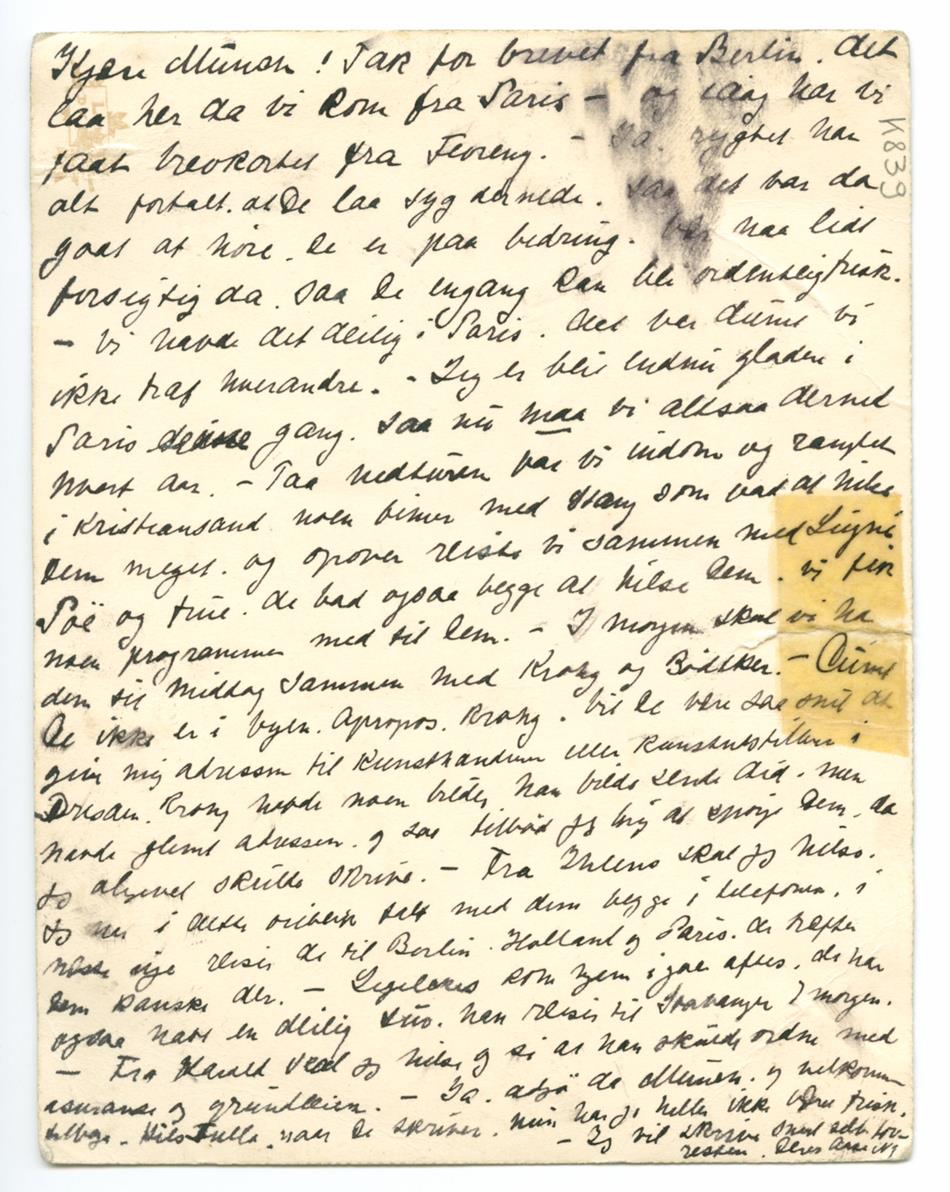 Kjære Munch! Tak for brevet fra Berlin. Det
laa her da vi kom fra Paris – og idag har vi
faat brevkortet fra Florenz. – Ja. rygtet har
alt fortalt. at De laa syg dernede. saa det var da
godt at höre. De er paa bedring. Vær naa lidt
forsigtig da. saa De engang kan bli ordentlig frisk.
– Vi havde det deilig i Paris. Det var dumt vi
ikke traf hverandre. – Jeg er blit endnu gladere i
Paris denne gang. saa nu maa vi altsaa derned
hvert aar. – Paa nedturen var vi indom og ranglet
i Kristiansand noen timer med Stang som bad at hilse
Dem meget. og opover reiste vi sammen med Lugné
Poë og frue. de bad ogsaa begge at hilse Dem. vi fik
noen programmer med til Dem. – I morgen skal vi ha
dem til Middag sammen med Krohg og Bödtker. – Dumt
De ikke er i byen. Apropos. Krohg. vil De være saa snil at
give mig adressen til Kunsthandleren eller Kunstutstillingen i
Dresden. Krohg havde noen billeder han vilde sende did. men
havde glemt adressen. og saa tilböd jeg mig at spörge Dem. da
jeg alligevel skulde skrive. – Fra Ihlens skal jeg hilse.
jeg har i dette öieblik talt med dem begge i telefonen. i
næste uge reiser de til Berlin. Holland og Paris. de træffer
Dem kanske der. – kom hjem igaar aftes. de har
ogsaa havt en deilig tur. han reiser til Stavanger I morgen.
– Fra Harald skal jeg hilse og si at han skulde ordne med
asuranse og grundleien. – Ja. adjö da Munch. og velkommen
tilbage. Hils Tulla. naar De skriver. hun har jo heller ikke været frisk.
– Jeg vil skrive snart selv for-
resten. Deres Aase N
K839